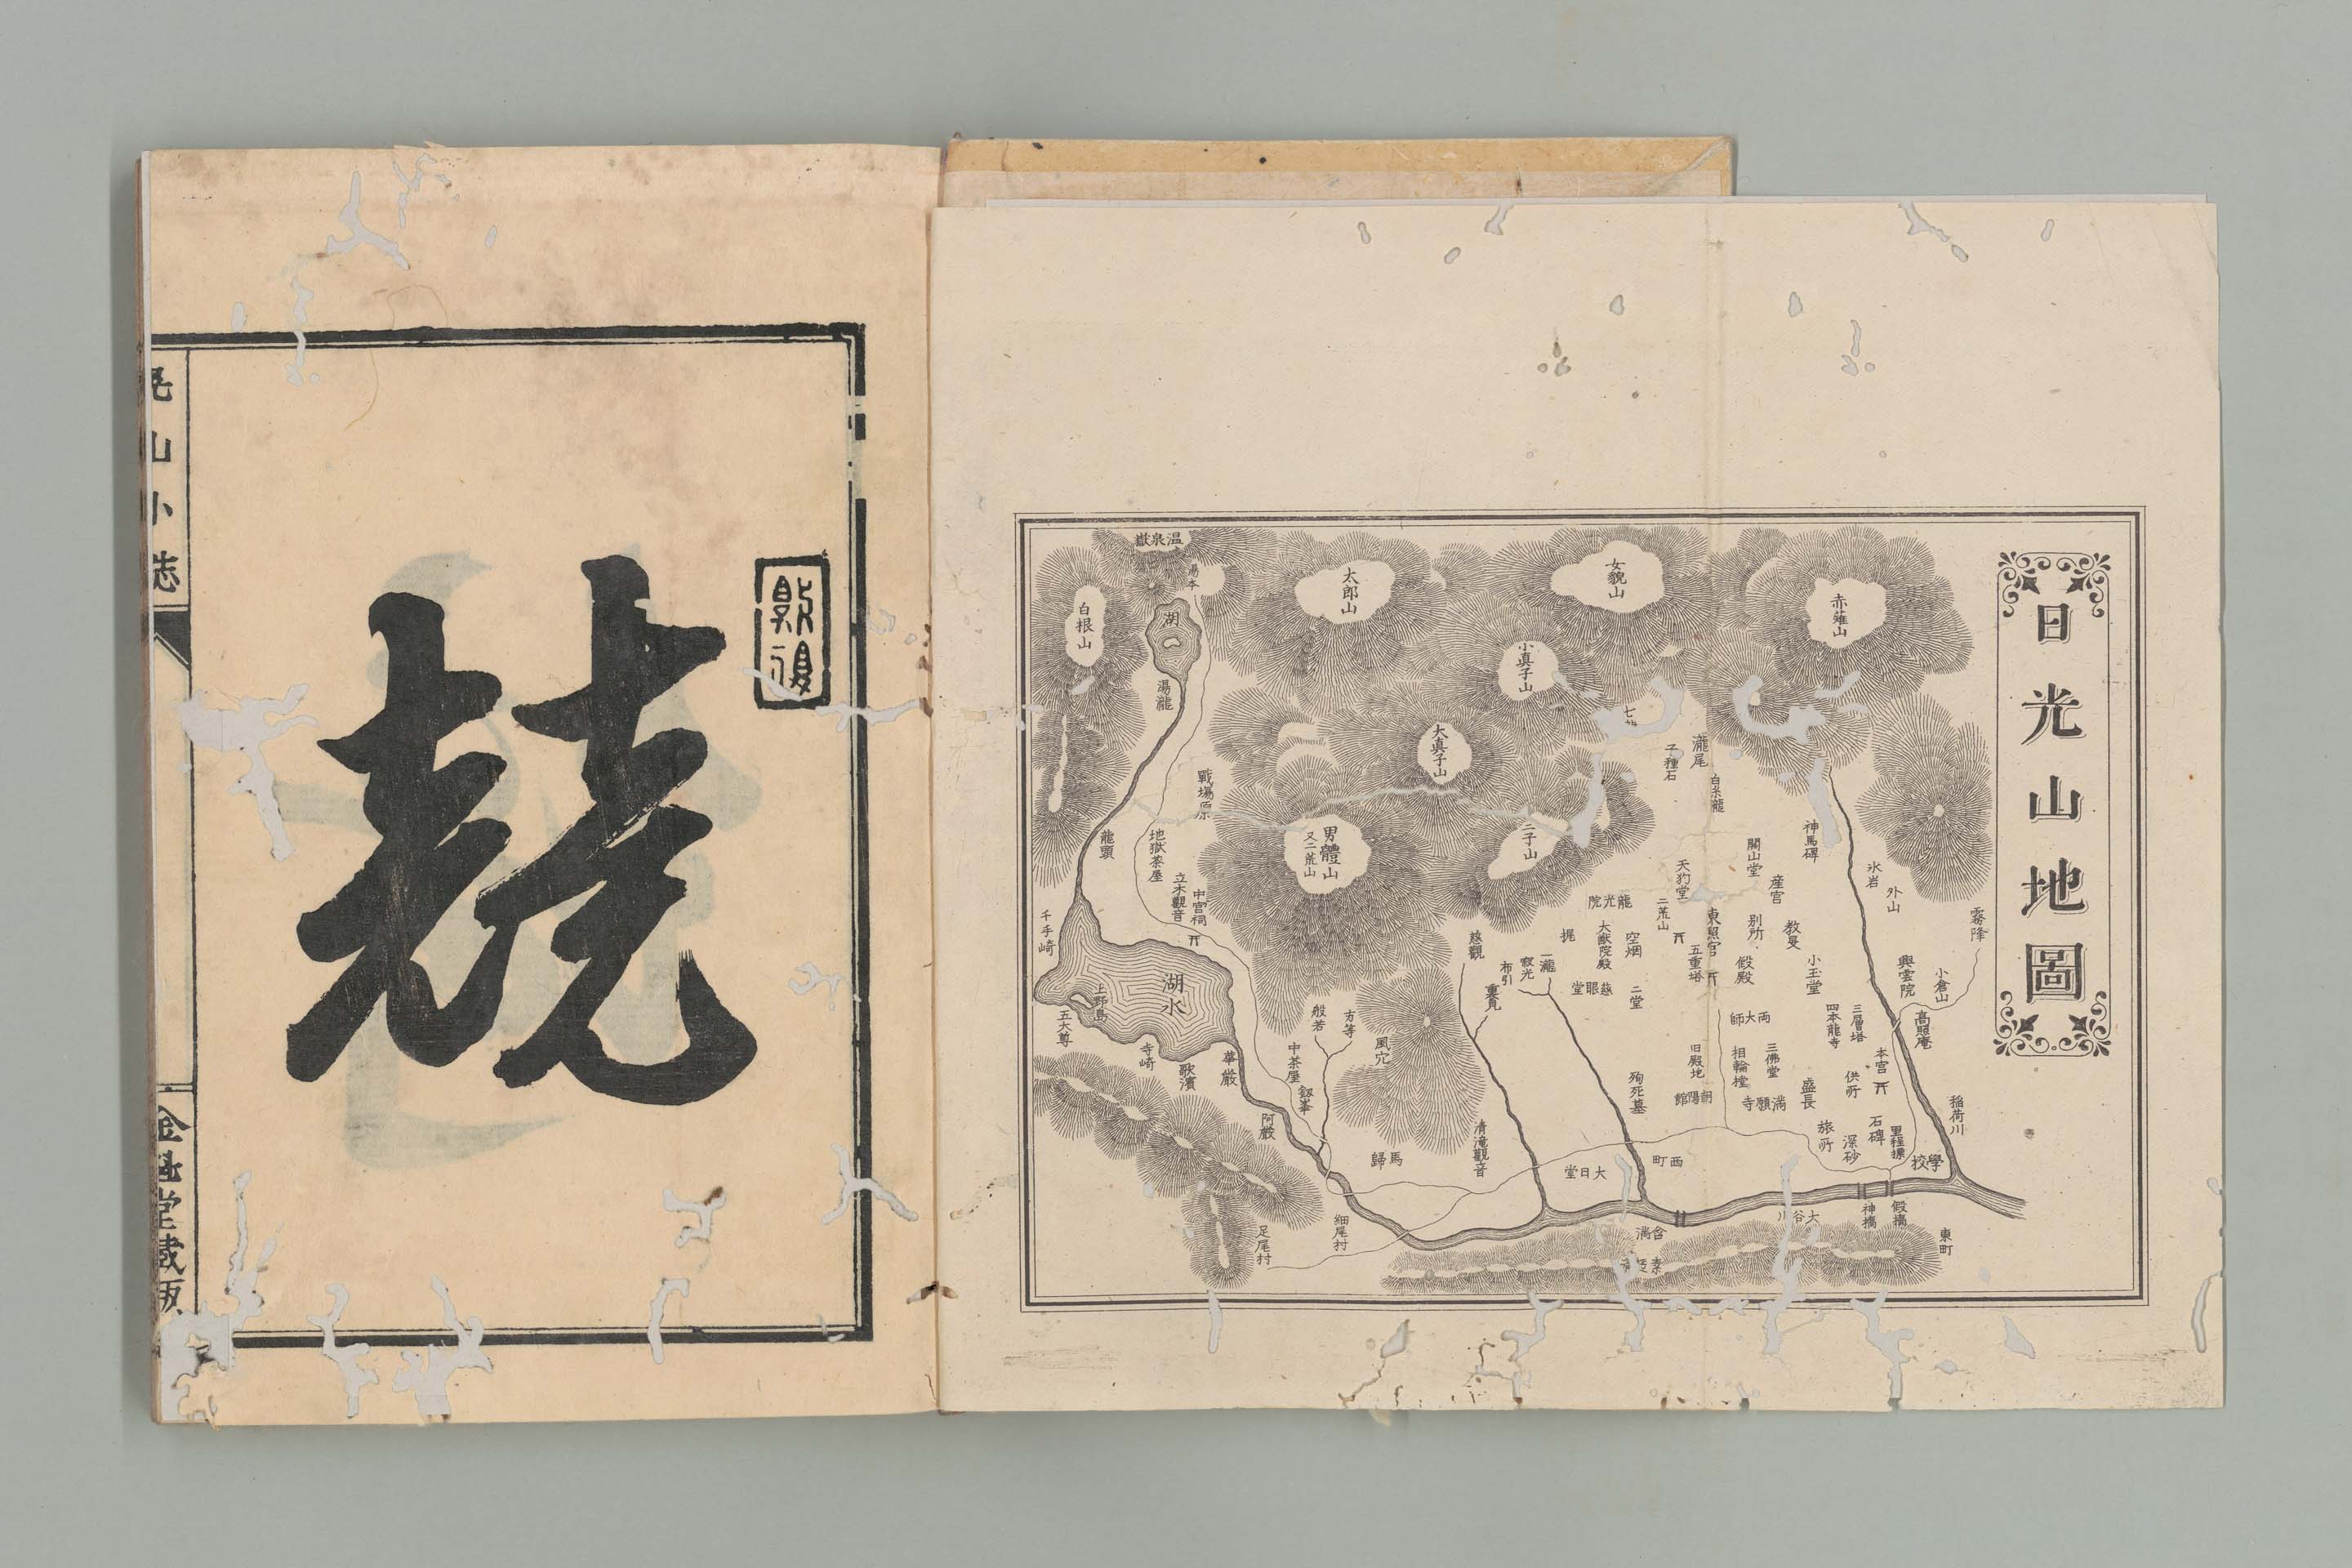 日光山地圖
赤薙山
女貌山
太郎山
溫泉嶽
湯本
白根山
湖
湯瀧
小真子山
大真子山
男體山
又二荒山
二子山
戰塲原
龍頭
地獄茶屋
立木觀音
中宮祠
千手崎
湖水
上野島
五大尊
寺崎
歌濱
華厳
阿嚴
中茶屋
般若
方等
風穴
馬歸
細尾村
足尾村
清滝觀音
慈觀
布引
寂光
一瀧
瀧尾
子種石
白糸瀧
神馬碑
開山堂
産宮
氷岩
外山
霧降
天狗堂
二荒山
東照宮
五重塔
別所
假殿
教旻
小玉堂
龍光院
大猷院殿
空烟
慈眼堂
二堂
興雲院
小倉山
高照庵
両大師
四本龍寺
三層塔
本宮
供所
旧殿地
相輪橖
三佛堂
殉死墓
朝陽館
満願寺
盛長
旅所
深砂
石碑
里程標
稲荷川
學校
西町
大日堂
大谷川
神橋
假橋
東町
含満
競
晃山小誌
金港堂蔵版